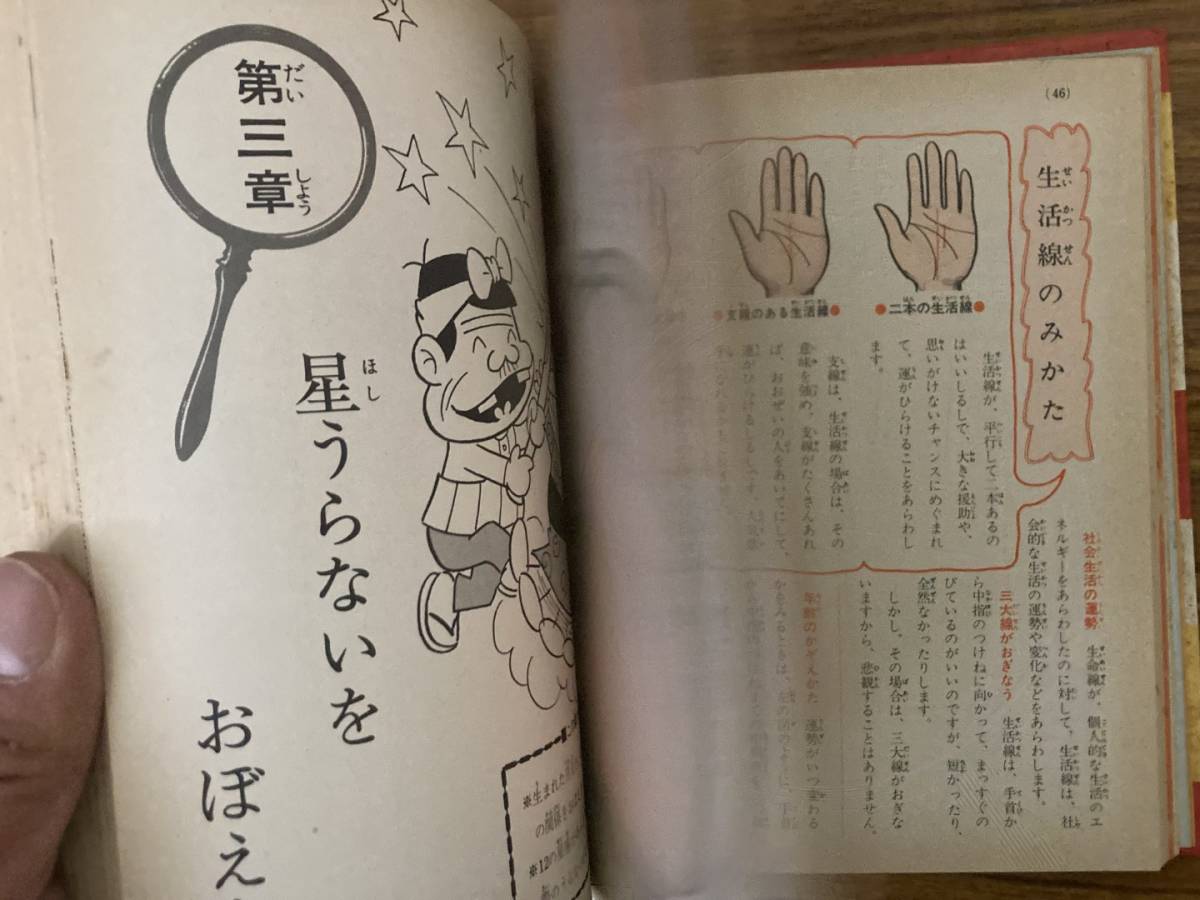 (46)
生活線のみかた
二本の生活線
生活線が、平行して二本あるの
はいいしるしで、大きな援助や、
思いがけないチャンスにめぐまれ
て、運がひらけることをあらわし
ます。
支線のある生活線
支線は、生活線の場合は、その
意味を強め、支線がたくさんあれ
ば、おおぜいの人をあいてにして、
運がひらけるしるしです。
社会生活の運勢 生命線が、個人的な生活のエ
ネルギーをあらわしたのに対して、生活線は、社
会的な生活の運勢や変化などをあらわします。
三大線がおぎなう 生活線は、手首か
ら中指のつけねに向かって、まっすぐの
びているのがいいのですが、短かったり、
全然なかったりします。
しかし、その場合は、三大線がおぎな
いますから、悲観することはありません。
年齢のかぞえかた 運勢がいつ変わる
かをみるときは、
第三章
星うらないを
おぼえ
※生まれた
の関係を
※12の